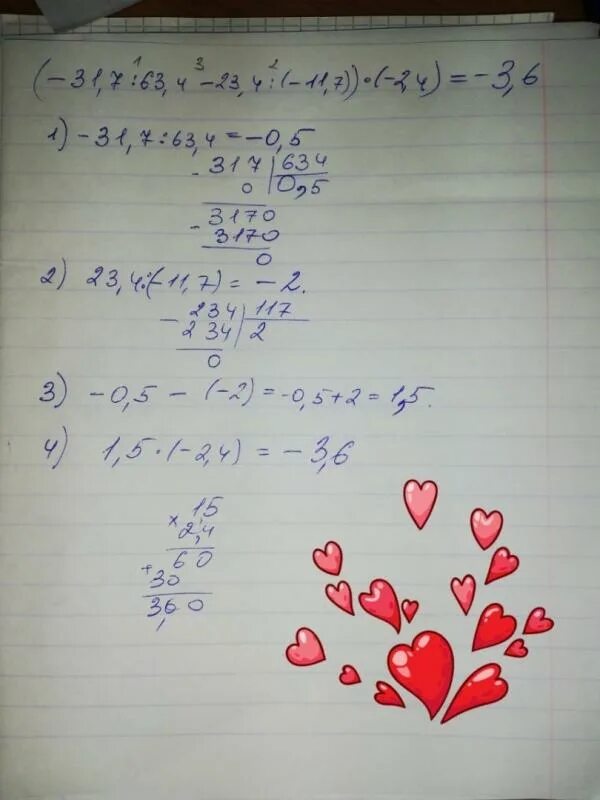 1 3 2
(-31,7:63,4-23,4:(-11,7))·(-2,4)=-3,6
1) -31,7:63,4=-0,5
- 317 | 634
0 | 0,5
- 3170
3170
0
2) 23,4:(-11,7) = -2.
- 234 | 117
234 | 2
0
3) -0,5 - (-2) = -0,5+2 = 1,5.
4) 1,5·(-2,4) = -3,6
× 1,5
2,4
+ 60
30
3,60